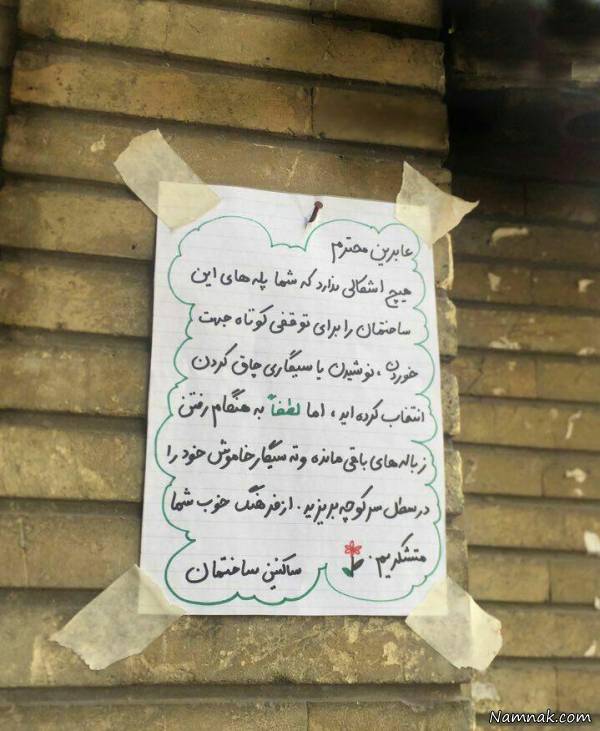 عابرین محترم
هیچ اشکالی ندارد که شما پله های این
ساختمان را برای توقفی کوتاه جهت
خوردن، نوشیدن یا سیگاری چاق کردن
انتخاب کرده اید، اما لطفاً به هنگام رفتن
زباله های باقی مانده و ته سیگار خاموش خود را
در سطل سر کوچه بریزید. از فرهنگ خوب شما
متشکریم.
ساکنین ساختمان
Namnak.com